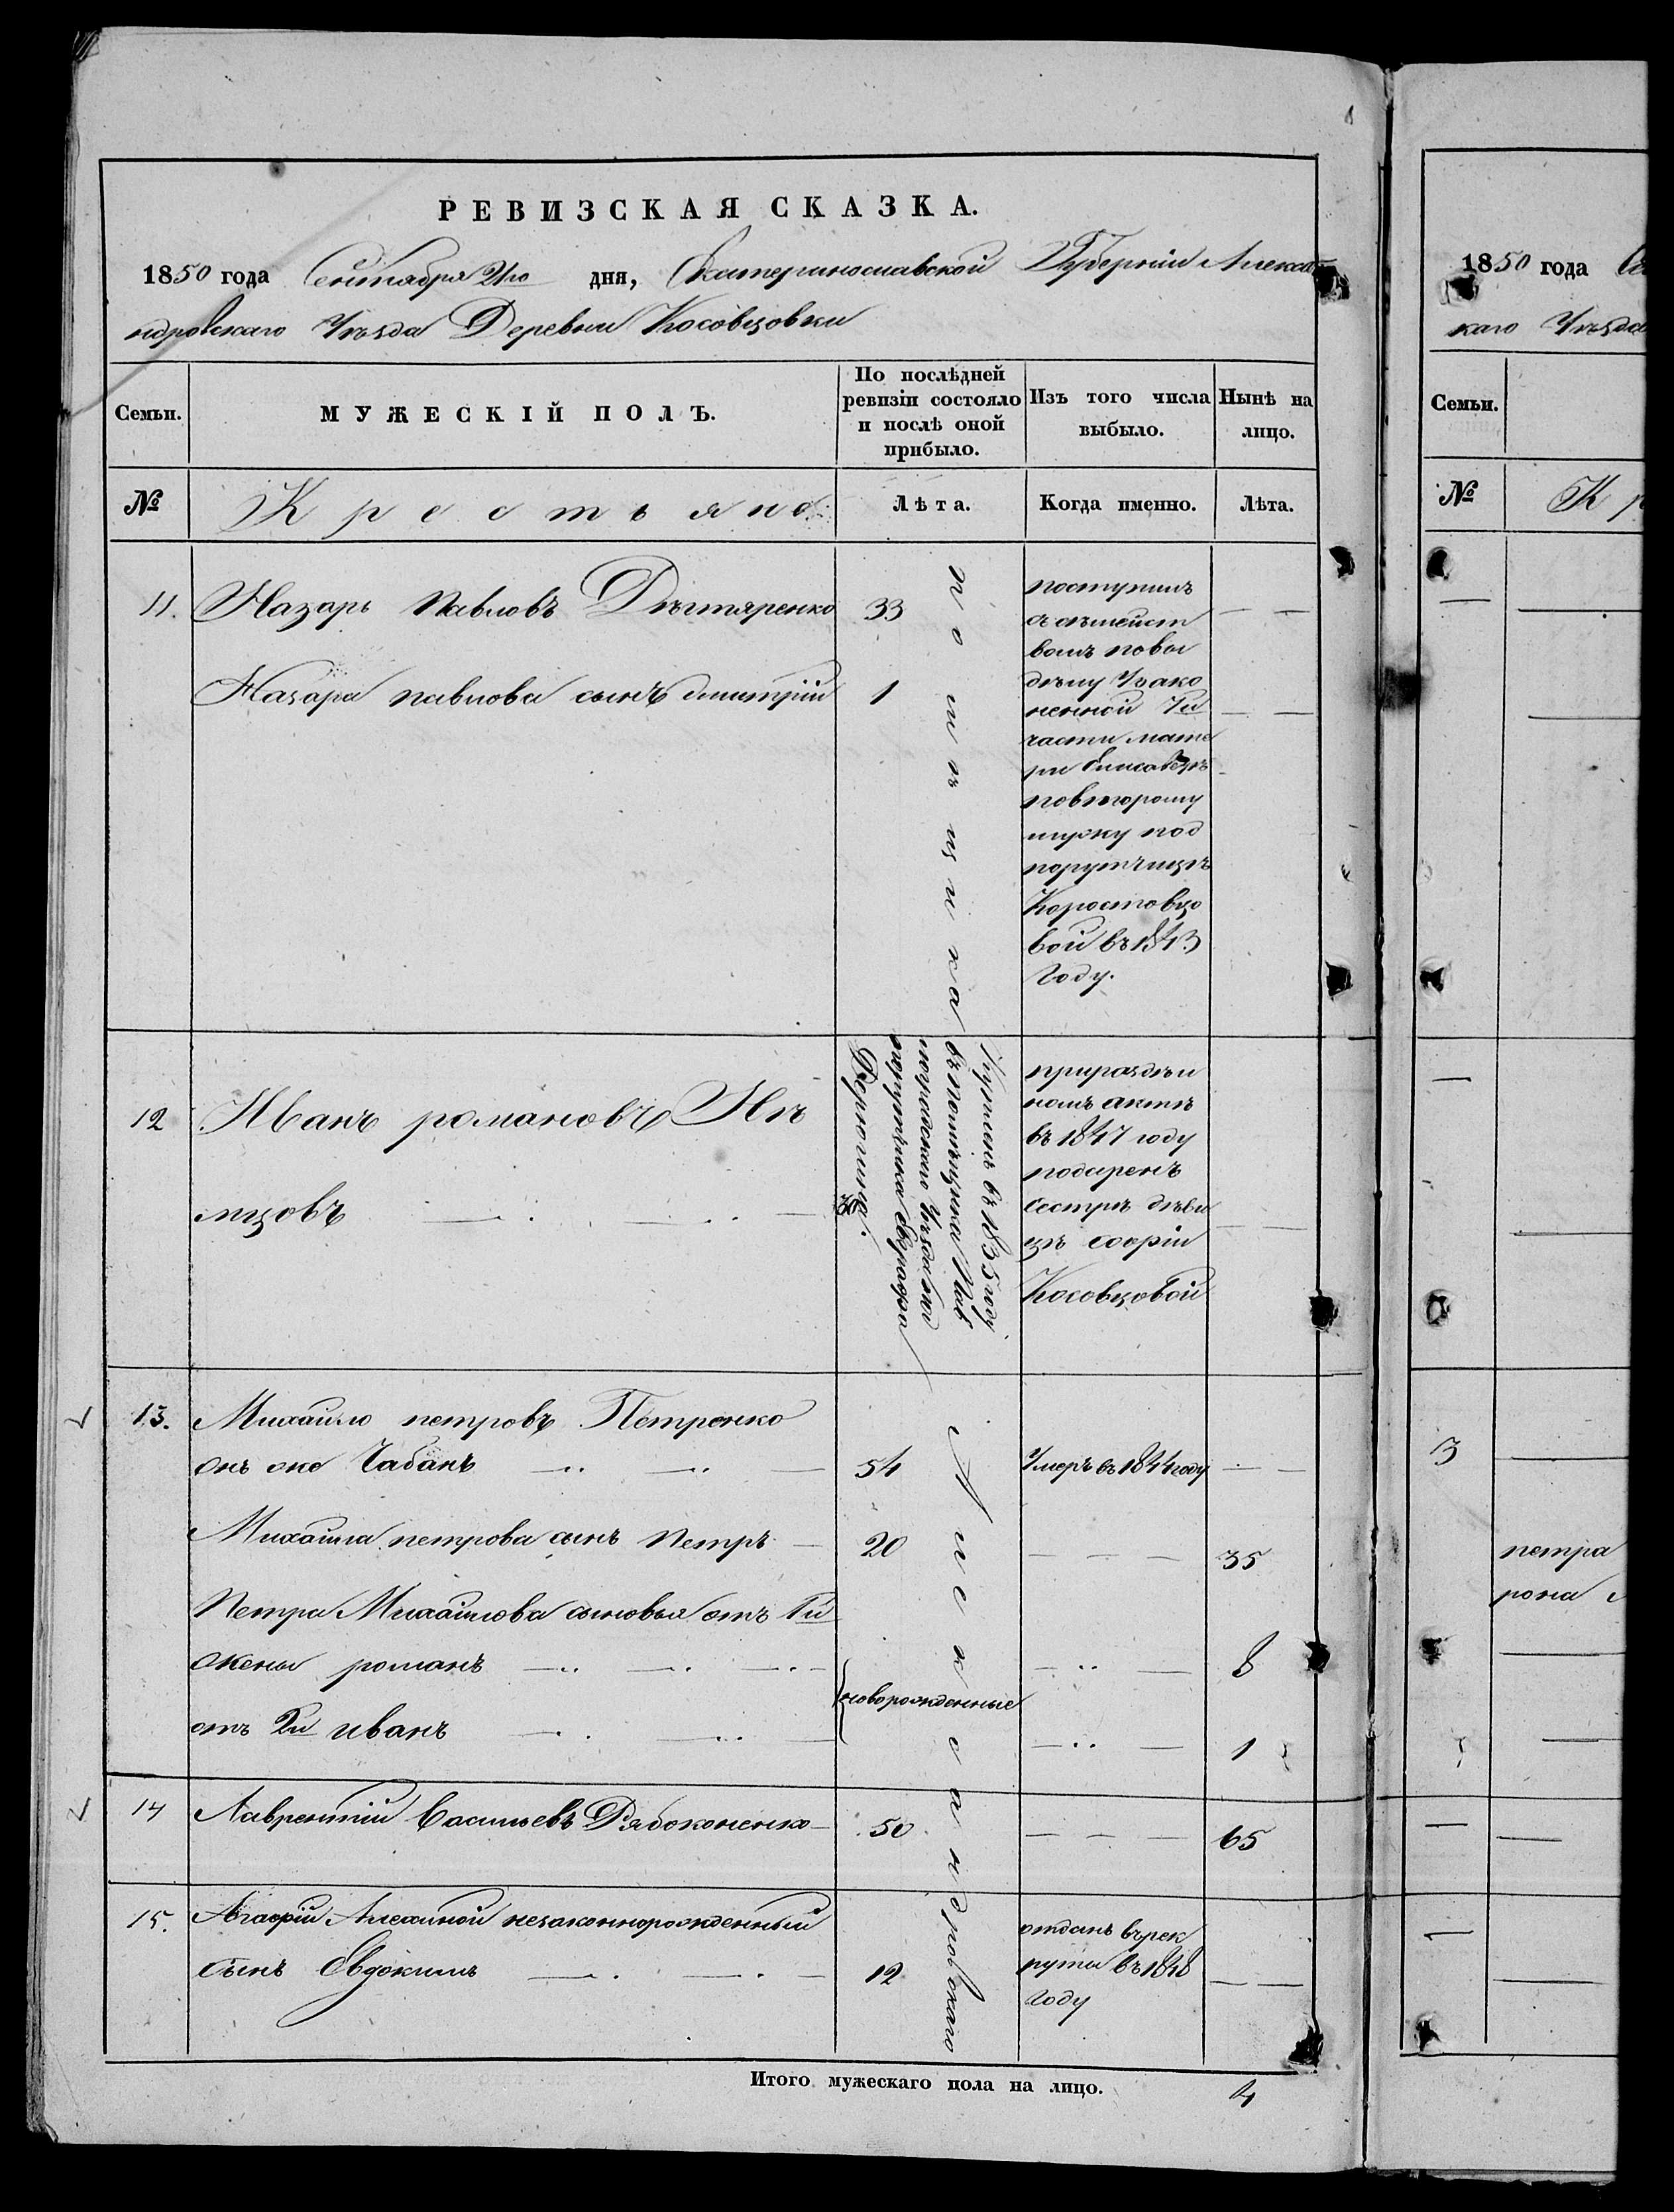 РЕВИЗСКАЯ СКАЗКА.
1850 года Сентября 21го дня, Екатеринославской Губерніи Алекса
ндровскаго Уѣзда Деревни Косовцовки
Семьи.
МУЖЕСКІЙ ПОЛЪ.
По послѣдней
ревизіи состояло
и послѣ оной
прибыло.
Изъ того числа
выбыло.
Нынѣ на
лицо.
№
Крестьянъ
Лѣта.
Когда именно.
Лѣта.
11. Назаръ павловъ Дѣгтяренко 33
Назара павлова сынъ дмитрій 1
поступилъ
съ сѣмейст
вомъ повы
дѣлу Узако
ненной 7й
части мате
ри Елисаветѣ
повторому
мужу под
порутчицѣ
Коростовцо
вой въ 1843
Году.
помѣщика
12 Иванъ романовъ Нѣ
мцовъ
Купленъ въ 1835 году
въ помѣщика Пав
лоградскаго Уѣзда
порутчика Евграфа
приразделъ
номъ актѣ
въ 1847 году
подаренъ
сестрѣ дѣви
цѣ Софіи
Косовцовой
13. Михайло петровъ Петренко
онъ же Чабанъ 54 Умеръ въ 1844 году
Михайла петрова сынъ петръ 20 35
Петра Михайлова сыновья отъ 1й
жены романъ 8
новорожденные
отъ 2й иванъ 1
Александровскаго
14 Лаврентій Васильевъ Рябоконенко 50 65
15. Агафіи Алехиной незаконнорожденный
сынъ Евдокимъ 12
отданъ въ рек
руты въ 1848
Году
Итого мужескаго пола на лицо. 4
1850 года
каго Уѣзда
Семьи.
№
К р
3
петра
рона